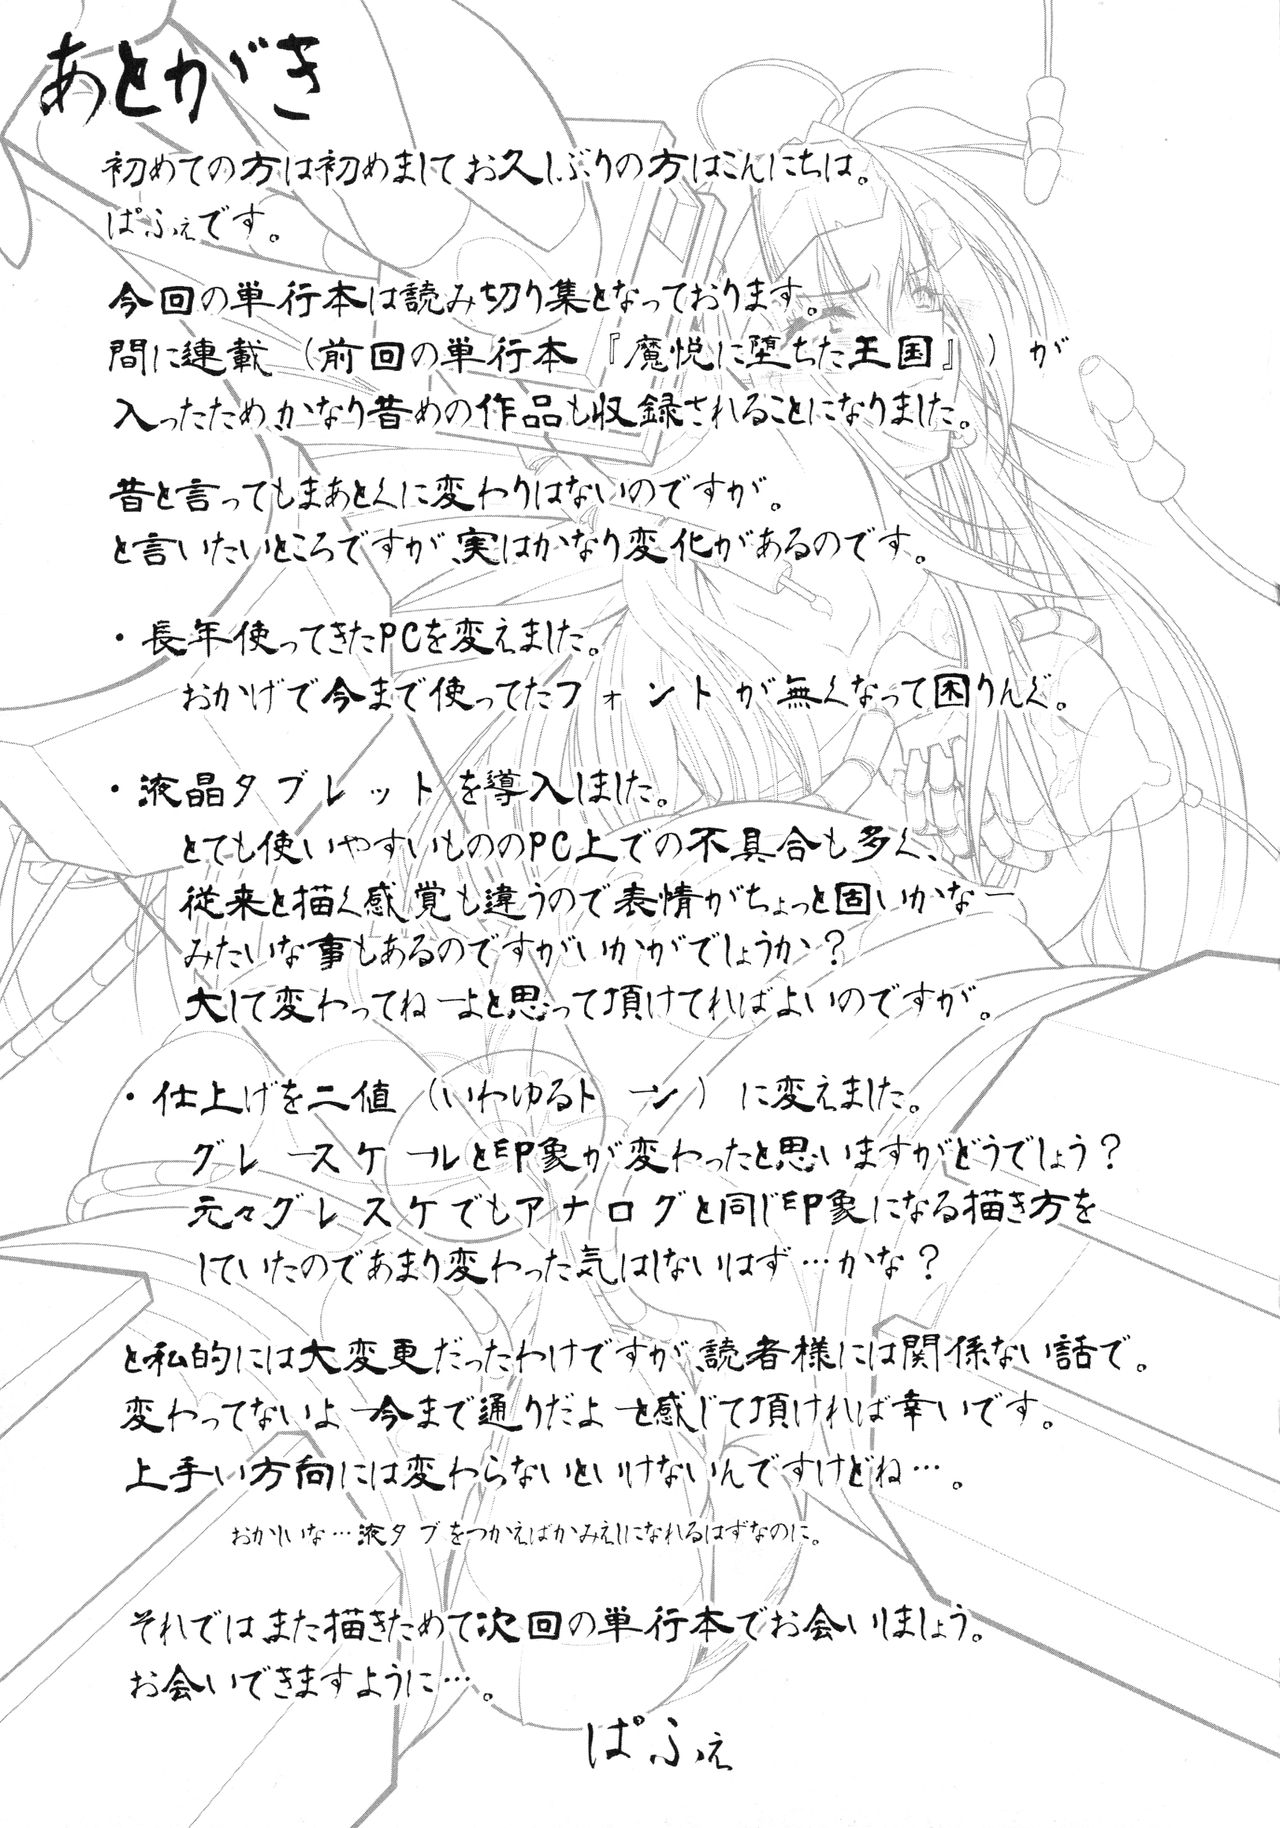 あとがき
初めての方は初めましてお久しぶりの方はこんにちは。
ぱふぇです。
今回の単行本は読み切り集となっております。
間に連載（前回の単行本『魔悦に堕ちた王国』）が
入ったためかなり昔めの作品も収録されることになりました。
昔と言ってもまあとくに変わりはないのですが。
と言いたいところですが、実はかなり変化があるのです。
・長年使ってきたPCを変えました。
おかげで今まで使ってたフォントが無くなって困りんぐ。
・液晶タブレットを導入しました。
とても使いやすいもののPC上での不具合も多く、
従来と描く感覚も違うので表情がちょっと固いかなー
みたいな事もあるのですがいかがでしょうか？
大して変わってねーよと思って頂けてればよいのですが。
・仕上げを二値（いわゆるトーン）に変えました。
グレースケールと印象が変わったと思いますがどうでしょう？
元々グレスケでもアナログと同じ印象になる描き方を
していたのであまり変わった気はしないはず…かな？
と私的には大変更だったわけですが、読者様には関係ない話で。
変わってないよー今まで通りだよーと感じて頂ければ幸いです。
上手い方向には変わらないといけないんですけどね…。
おかしいな…液タブをつかえばかみえしになれるはずなのに。
それではまた描きためて次回の単行本でお会いしましょう。
お会いできますように…。
ぱふぇ